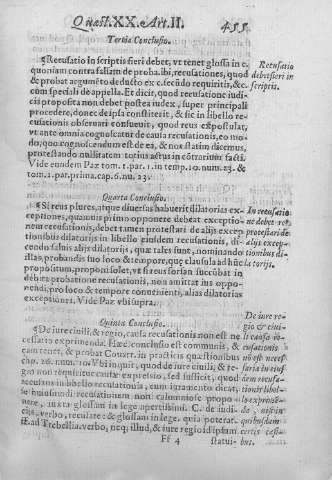 Quæst. XX. Art. II. 455
Tertia Conclusio.
¶Recusatio in scriptis fieri debet, vt tenet glossa in c.
quoniam contra falsam de proba. ibi, recusationes, quod
& probat argumẽto deducto ex c. secũdo requiritis, & c.
cum speciali de appella. Et dicit, quod recusatione iudi-
cis proposita non debet postea iudex, super principali
procedere, donec de ipsa constiterit, & sic in libello re-
cusationis obseruent consueuit, quod reus expostulat,
vt ante omnia cognoscatur de causa recusationis, eo mo-
do, quo cognoscendum est de ea, & nos statim dicemus,
protestando nullitatem totius actus in cõtrarium facti.
Vide eundem Paz tom. 1. par. 1. in temp. 10. num. 23. &
tom. 2. par. prima. cap. 6. nu. 23.
Recusatio
debet fieri in
scriptis.
Quarta Conclusio.
¶Si reus plures, atque diuersas habuerit dilatorias ex-
ceptiones, quamuis primo opponere debeat exceptio-
nem recusationis, debet tamen protestari de alijs excep-
tionibus dilatorijs in libello eiusdem recusationis, di-
cendo saluis alijs dilatorijs, quæ tales sunt, nominando
illas, probandis suo loco & tempore, quæ clausula ad hũc
propositum, proponi solet, vt si reus forsan succũbat in
debita probatione recusationis, non amittat ius oppo-
nendi, pro loco & tempore conuenienti, alias dilatorias
exceptiones. Vide Paz vbi supra.
In recusatio
ne debet
protestari de
alijs excep-
tionibus di-
latorijs.
Quinta Conclusio.
¶De iure ciuili, & regio, causa recusationis non est ne
cessario exprimenda. Hæc conclusio est communis, &
tenet, & probat Couarr. in practicis quæstionibus
cap. 26. num. 10. Vbi inquit, quod de iure ciuili, & re-
gio non requiritur causæ expressio, sed sufficit, quod
recusans in libello recusationis, cum iuramento dicat,
se huiusmodi recusationem non calumniose propo-
nere, iuxta glossam in lege apertissimi. C. de iudi-
cijs, verbo, recusare: & glossam in lege. quia poterat.
ff. ad Trebellia. verbo, neq; illud, & iure regio id ipsum
De iure re-
gio & ciui-
li causa
recusationis
non est neces-
saria
Ff 4 statui-